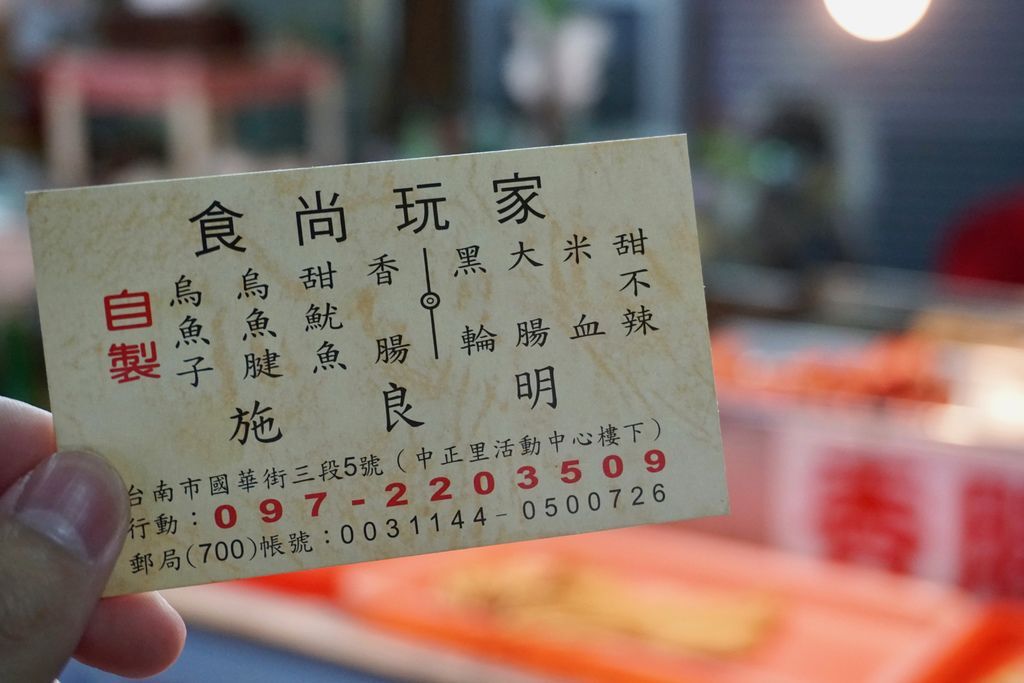 食尚玩家
自製
烏魚子
烏魚腱
甜魷魚
香腸
黑輪
大腸
米血
甜不辣
施良明
台南市國華街三段5號（中正里活動中心樓下）
行動：097-2203509
郵局(700)帳號：0031144-0500726